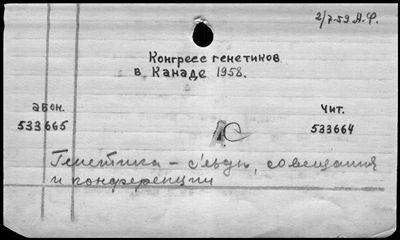 2/7-59 А.Ф.
Конгресс генетиков
в Канаде 1958.
абон.
533665
чит.
533664
Генетика – съезды, совещания
и конференции